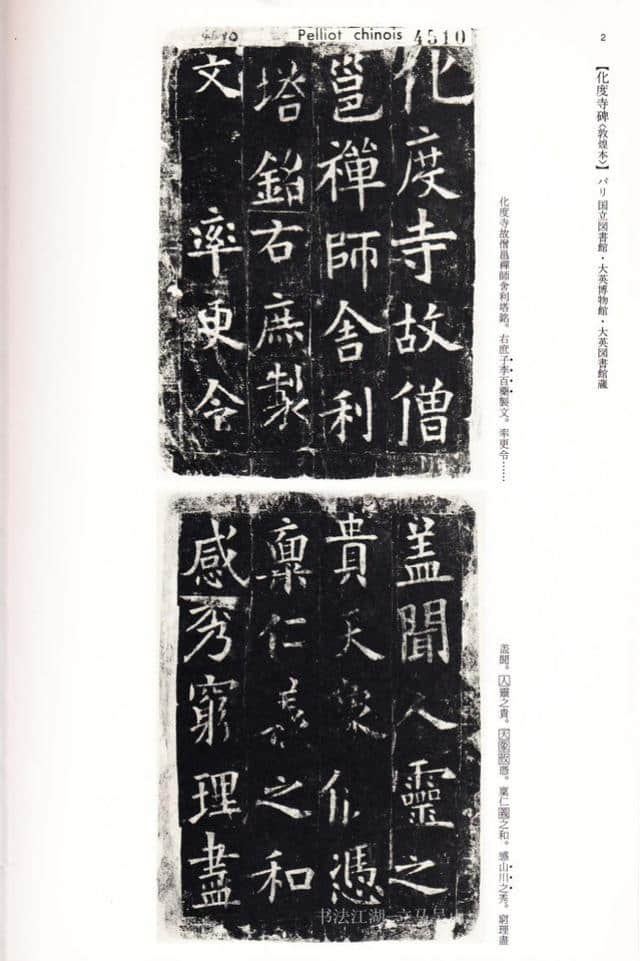 2
【化度寺碑〈敦煌本〉】パリ国立図書館・大英博物館・大英図書館蔵
4510
Pelliot chinois 4510
化度寺故僧
邕禪師舍利
塔銘右庶製
文率更令
化度寺故僧邕禪師舍利塔銘。右庶子李百藥製文。率更令……
蓋聞人靈之
貴天象攸憑
稟仁義之和
感秀窮理盡
蓋聞。人靈之貴。天象攸憑。稟仁義之和。感山川之秀。窮理盡